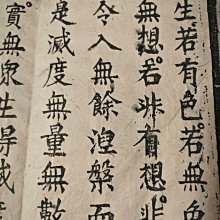 生。若有色。若無色
無想。若非有想。非
令入無餘湼槃而
是滅度無量無數
實無眾生得滅